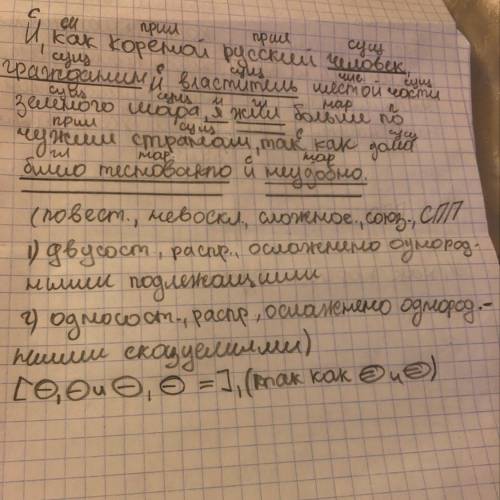 с    сз    прил    прил    сущ
И как коренной русский человек,
сущ    с    сущ    чис.    сущ
гражданин и властитель шестой части
сущ    сущ    м    гл    нар    п
земного шара, я жил больше по
прил    сущ    с    сущ
чужим странам, так как дома
гл    нар    с    нар
было тесновато и неудобно.
(повест., невоскл, сложное., союз., СПП
1) двусост., распр., осложнено однород-
ными подлежащими
2) односост., распр, осложнено однород.-
ными сказуемыми)
[⊖,⊖ и ⊖, ⊖ =], (так как ⊜ и ⊜)